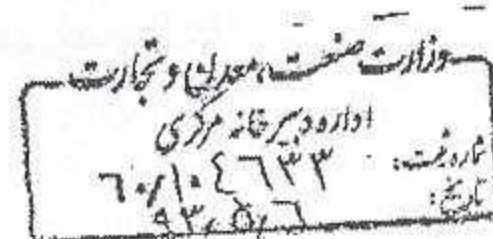 وزارت صنعت، معدن و تجارت
اداره دبیرخانه مرکزی
شماره ثبت: ۶۰/۱۰۴۶۳۳
تاریخ: ۹۳/۵/۶